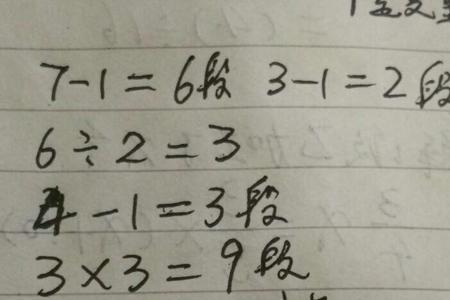 7-1=6段 3-1=2段
6÷2=3
4-1=3段
3×3=9段